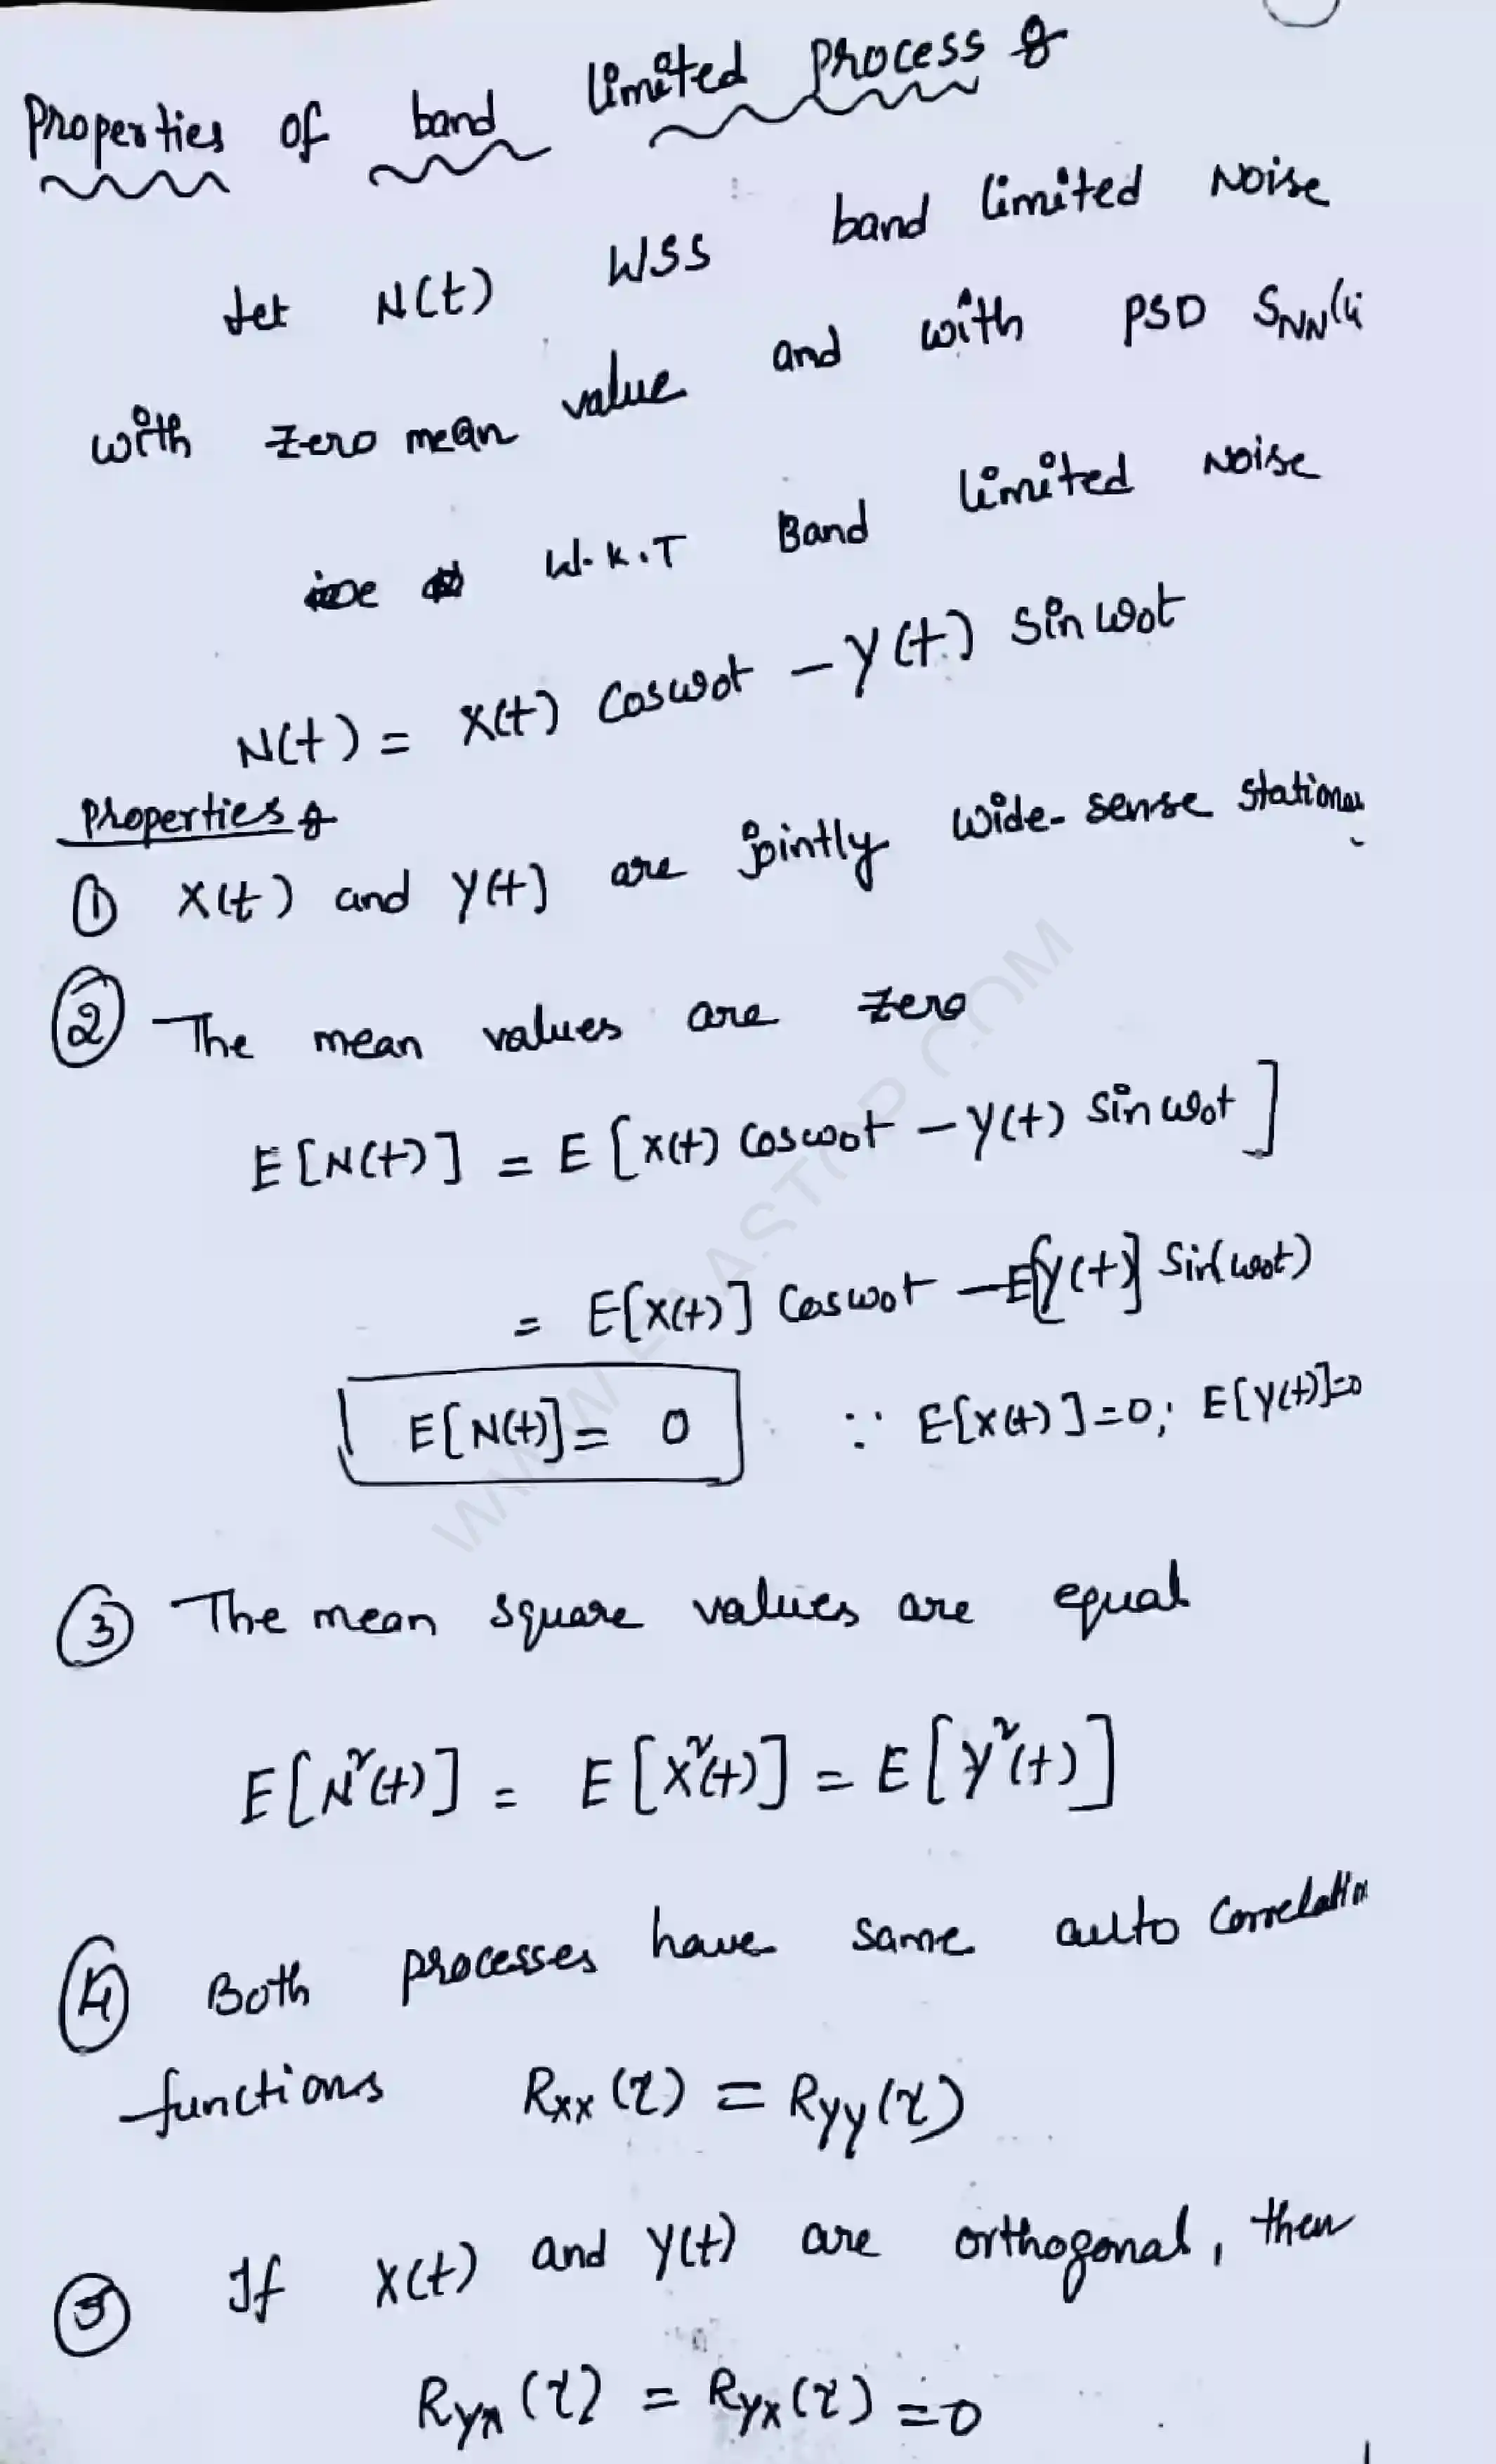 Properties of band limited process :-
Let N(t) WSS band limited Noise
with zero mean value and with PSD SNN(
W.K.T Band limited Noise
N(t) = X(t) cosω0t - Y(t) sin ω0t
Properties :-
① X(t) and Y(t) are jointly wide-sense stationa
② The mean values are zero
E[N(t)] = E[X(t) cosω0t - Y(t) sin ω0t]
= E[X(t)] cosω0t - E[Y(t)] sin(ω0t)
E[N(t)] = 0 ∵ E[X(t)]=0; E[Y(t)]=0
③ The mean square values are equal
E[N²(t)] = E[X²(t)] = E[Y²(t)]
④ Both processes have same auto correlation
functions RXX(τ) = RYY(τ)
⑤ If X(t) and Y(t) are orthogonal, then
RYX(τ) = RYX(τ) = 0